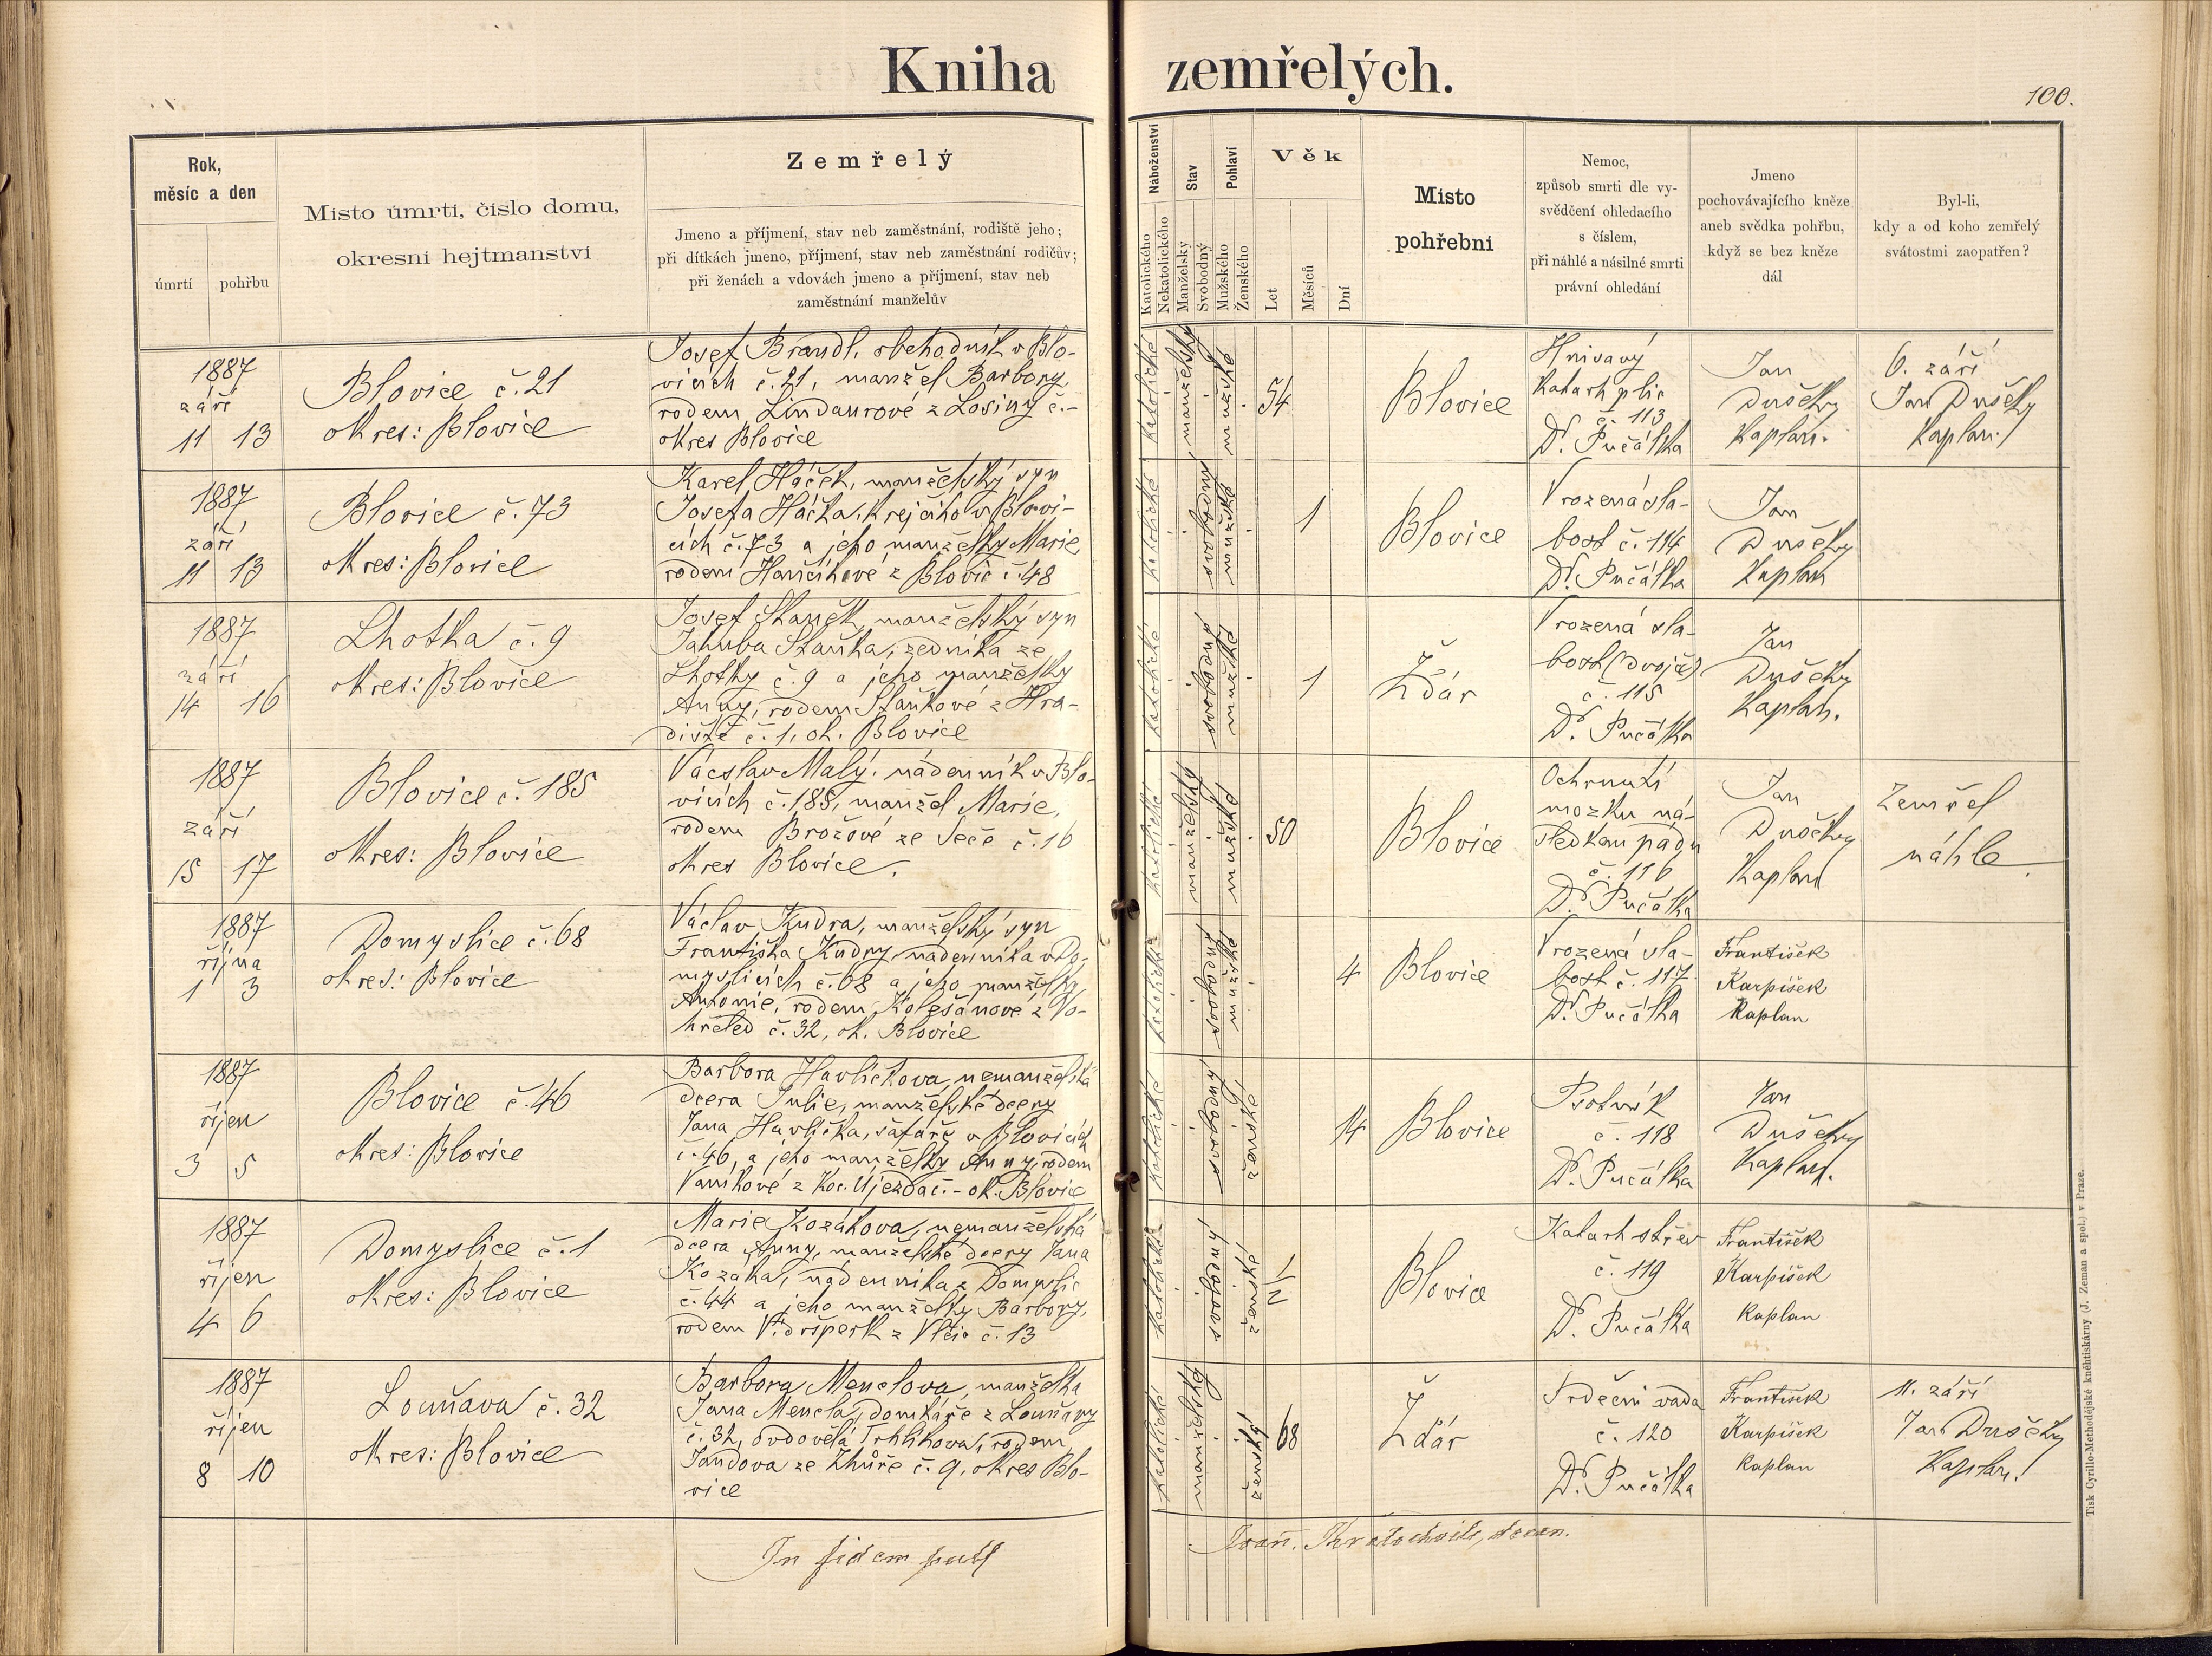 Kniha zemřelých.
100.
Rok,
měsíc a den
úmrtí
pohřbu
Místo úmrtí, číslo domu,
okresní hejtmanství
Zemřelý
Jmeno a příjmení, stav neb zaměstnání, rodiště jeho;
při dítkách jmeno, příjmení, stav neb zaměstnání rodičův;
při ženách a vdovách jmeno a příjmení, stav neb
zaměstnání manželův
Náboženství
Katolického
Nekatolického
Stav
Manželský
Svobodný
Pohlaví
Mužského
Ženského
Věk
Let
Měsíců
Dní
Místo
pohřební
Nemoc,
způsob smrti dle vy-
svědčení ohledacího
s číslem,
při náhlé a násilné smrti
právní ohledání
Jmeno
pochovávajícího kněze
aneb svědka pohřbu,
když se bez kněze
dál
Byl-li,
kdy a od koho zemřelý
svátostmi zaopatřen?
1887
září
11 13
Blovice č. 21
okres: Blovice
Josef Brandl, obchodník v Blo-
vicích č. 21, manžel Barbory,
rodem Lindaurové z Losiny č.-
okres Blovice
katolické
manželský
mužské
54
Blovice
Hnisavý
katarh plic
č. 113
Dr. Pučálka
Jan
Dušeky
Kaplan.
6. září
Jan Dušeky
Kaplan.
1887
září
11 13
Blovice č. 73
okres: Blovice
Karel Háček, manželský syn
Josefa Háčka, krejčího v Blovi-
cích č. 73 a jeho manželky Marie,
rodem Hančíkové z Blovic č. 48
katolické
svobodný
mužské
1
Blovice
Vrozená sla-
bost č. 114
Dr. Pučálka
Jan
Dušeky
Kaplan
1887
září
14 16
Lhotka č. 9
okres: Blovice
Josef Staněk, manželský syn
Jakuba Staňka, zedníka ze
Lhotky č. 9 a jeho manželky
Anny, rodem Staňkové z Hra-
diště č. 1, ok. Blovice
katolické
svobodný
mužské
1
Žďár
Vrozená sla-
bost (dvojče)
č. 115
Dr. Pučálka
Jan
Dušeky
Kaplan.
1887
září
15 17
Blovice č. 185
okres: Blovice
Václav Malý, nádenník v Blo-
vicích č. 185, manžel Marie,
rodem Brožové ze Seče č. 16
okres Blovice.
katolické
manželský
mužské
50
Blovice
Ochrnutí
mozku ná-
sledkem pádu
č. 116
Dr. Pučálka
Jan
Dušeky
Kaplan
Zemřel
náhle
1887
října
1 3
Domyslice č. 68
okres: Blovice
Václav Kudra, manželský syn
Františka Kudry, nádenníka v Do-
myslicích č. 68 a jeho manželky
Antonie, rodem Kolešanové z Vo-
hřeled č. 32, ok. Blovice
katolické
svobodný
mužské
4
Blovice
Vrozená sla-
bost č. 117
Dr. Pučálka
František
Karpíšek
Kaplan
1887
říjen
3 5
Blovice č. 46
okres: Blovice
Barbora Havlíčkova, nemanželská
dcera Julie, manželské dcery
Jana Havlíčka, šafáře v Blovicích
č. 46, a jeho manželky Anny, rodem
Vaníkové z Koc. Újezda č.- ok. Blovice
katolické
svobodný
ženské
14
Blovice
Psotník
č. 118
Dr. Pučálka
Jan
Dušeky
Kaplan.
1887
říjen
4 6
Domyslice č. 1
okres: Blovice
Marie Kozákova, nemanželská
dcera Anny, manželské dcery Jana
Kozáka, nádenníka z Domyslic
č. 44 a jeho manželky Barbory,
rodem z Vlčic č. 13
katolické
svobodný
ženské
1/2
Blovice
Katarh střev
č. 119
Dr. Pučálka
František
Karpíšek
Kaplan
1887
říjen
8 10
Louňava č. 32
okres: Blovice
Barbora Menclova, manželka
Jana Mencla, domkáře z Louňavy
č. 32, ovdovělá Trhlíkova, rodem
Jandova ze Zhůře č. 9, okres Blo-
vice
katolické
manželský
ženský
68
Žďár
Srdeční vada
č. 120
Dr. Pučálka
František
Karpíšek
Kaplan
11. září
Jan Dušeky
Kaplan.
In fidem publ
Joan. Kratochvíle, decan.
Tisk Cyrillo-Methodějské knihtiskárny (J. Zeman a spol.) v Praze.